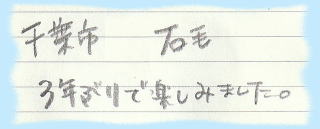 千葉市 石毛
3年ぶりで楽しみました。